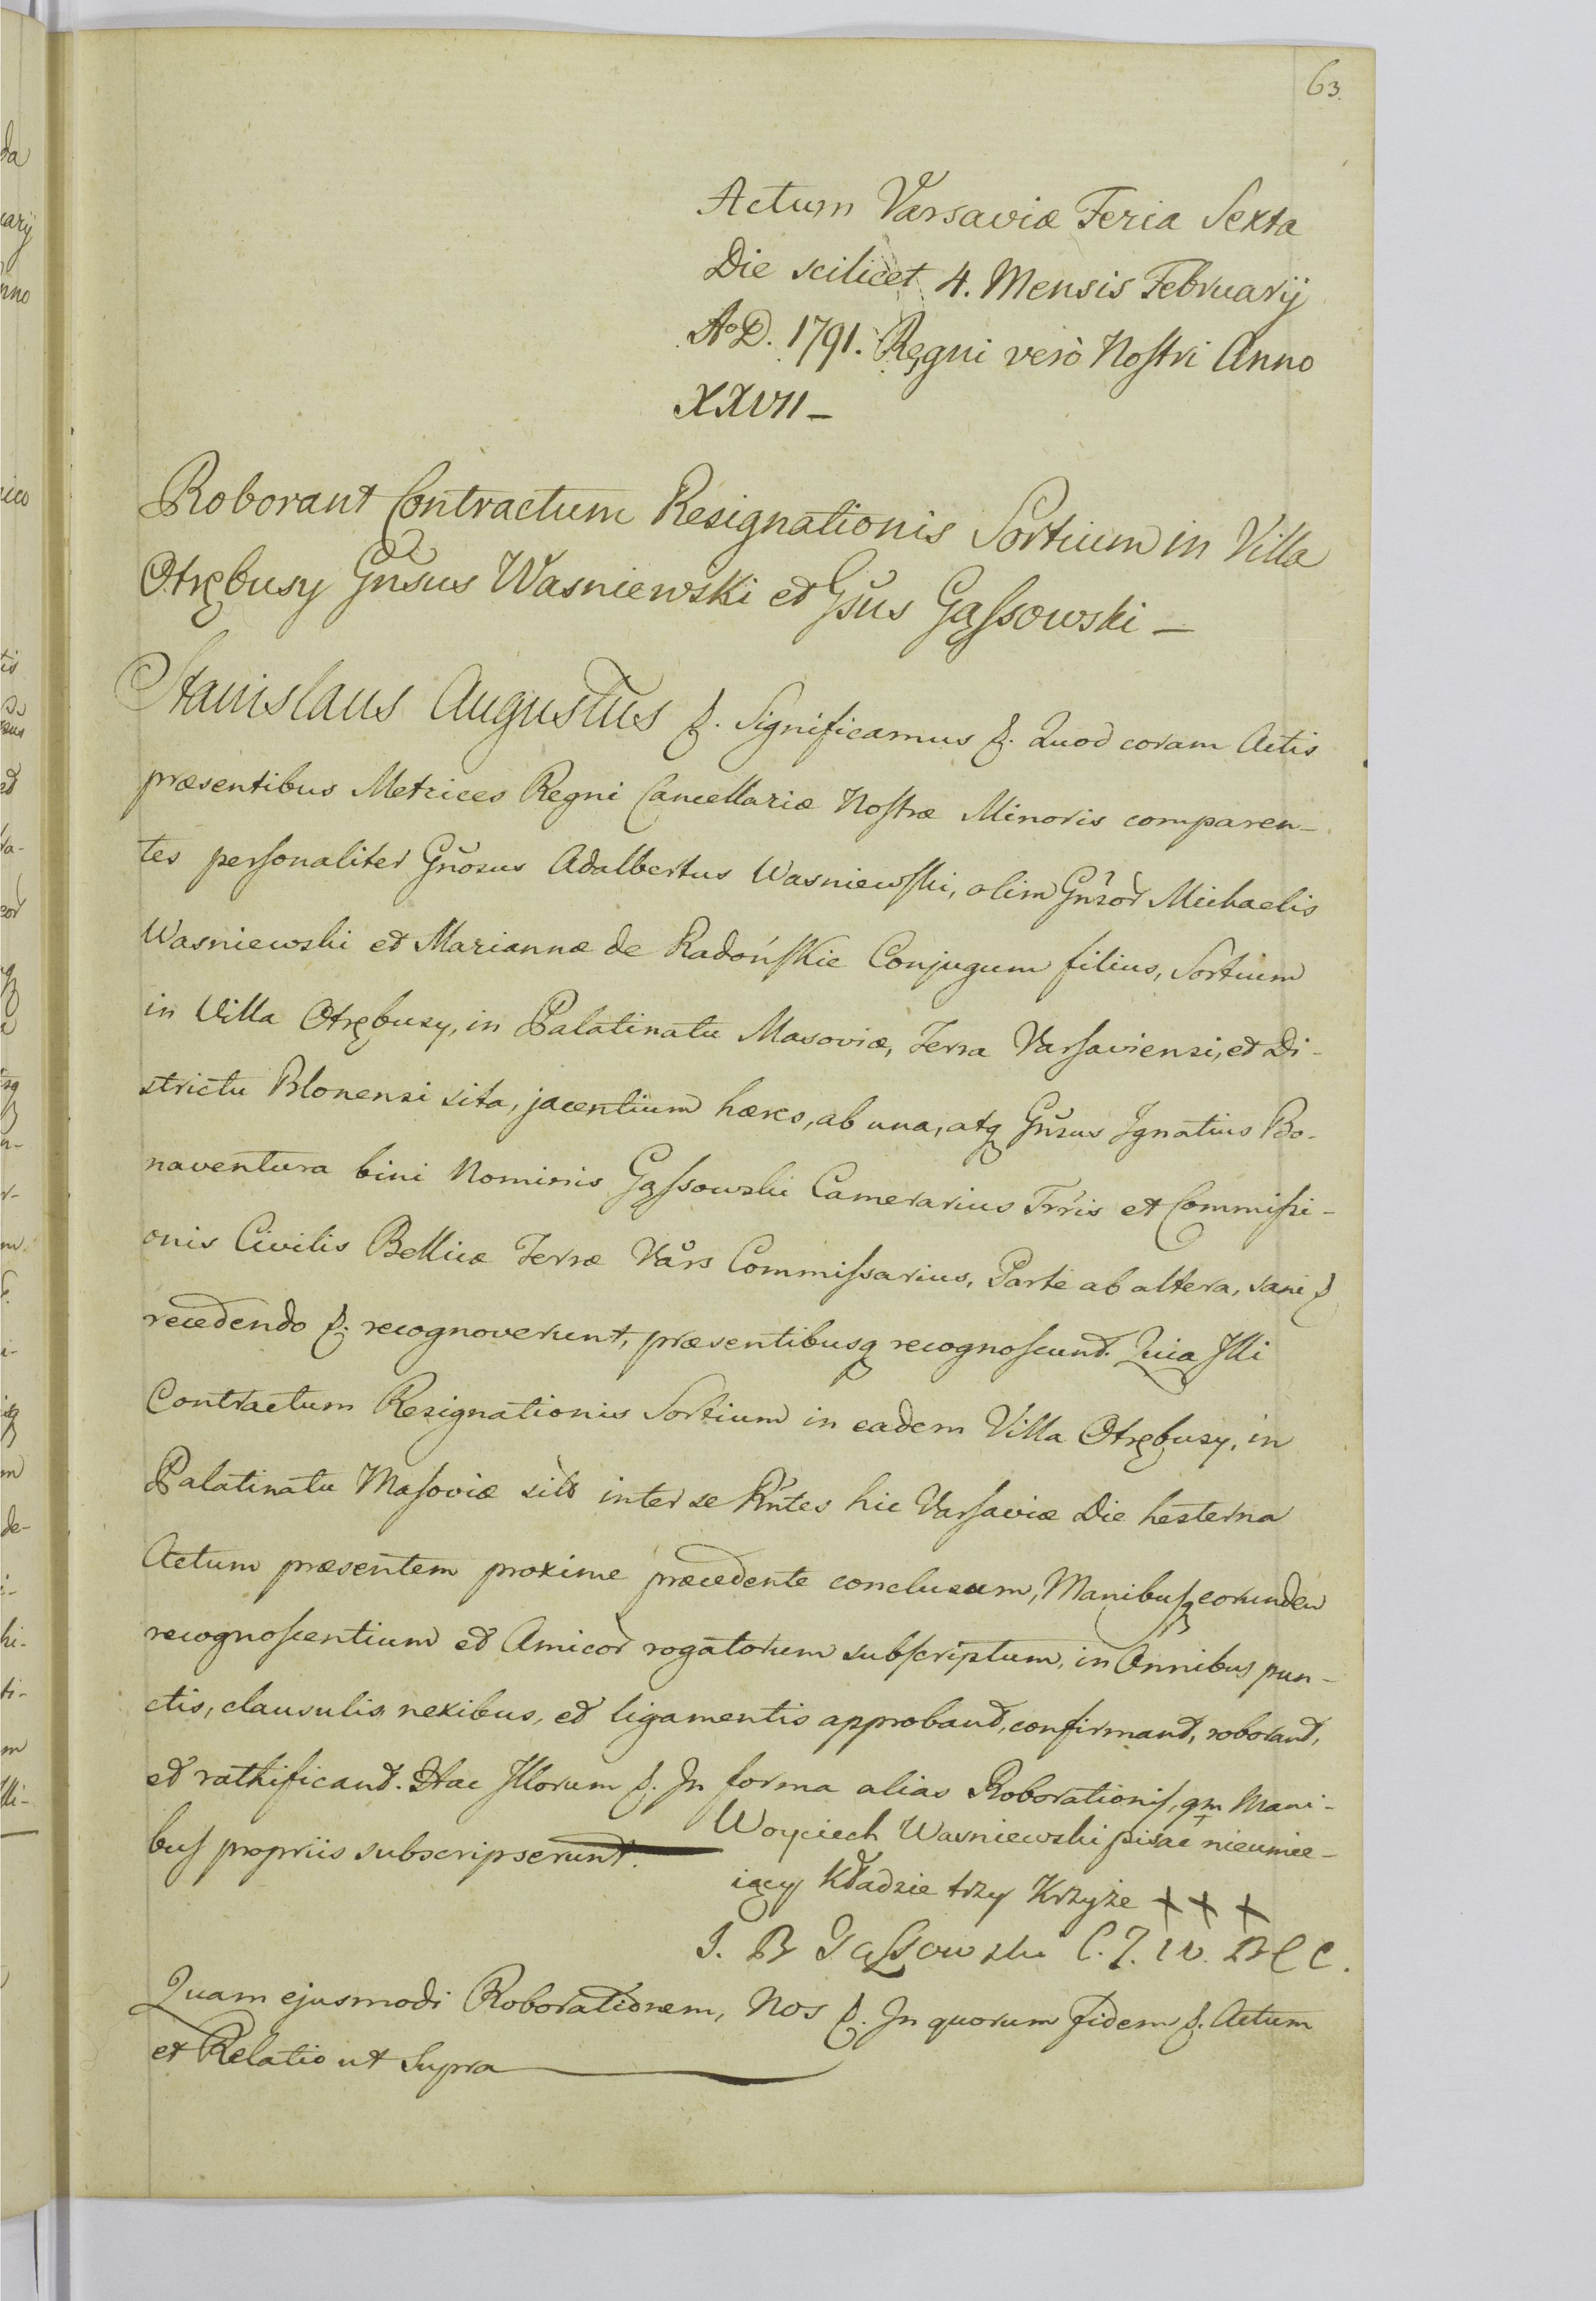 63.
Actum Varsaviæ Feria Sexta
Die scilicet 4. Mensis Februarij
AoD. 1791. Regni verò Nostri Anno
XXVII —
Roborant Contractum Resignationis Sortium in Villa
Otrębusy Gnsus Wasniewski et Gsus Gąssowski —
Stanislaus Augustus &. Significamus &. Quod coram Actis
præsentibus Metrices Regni Cancellariæ Nostræ Minoris comparen-
tes personaliter Gnosus Adalbertus Wasniewski, olim Gnsor Michaelis
Wasniewski et Mariannæ de Radońskie Conjugum filius, Sortium
in Villa Otrębusy, in Palatinatu Masoviæ, Terra Varsaviensi, et Di-
strictu Blonensi sita, jacentium hæres, ab una, atq Gnsus Ignatius Bo-
naventura bini Nominis Gąssowski Camerarius Trris et Commissi-
onis Civilis Bellicæ Terræ Vars Commissarius, Parte ab altera, sani &
recedendo &. recognoverunt, præsentibusq recognoscunt. Quia Illi
Contractum Resignationis Sortium in eadem Villa Otrębusy, in
Palatinatu Masoviæ inter se Rntes hic Varsaviæ Die hesterna
Actum præsentem proxime præcedente conclusum, Manibusq eorundem
recognoscentium et Amicor rogatorum subscriptum, in Omnibus pun-
ctis, clausulis nexibus, et ligamentis approbant, confirmant, roborant,
et rathificant. Hac Illorum &. In forma alias Roborationis, qm Mani-
bus propriis subscripserunt.
Woyciech Wasniewski pisac nieumie-
iący Kładzie trzy Krzyże + + +
I. B Gąssowski C. Z. W. B C C.
Quam ejusmodi Roborationem, Nos &. In quorum fidem &. Actum
et Relatio ut Supra